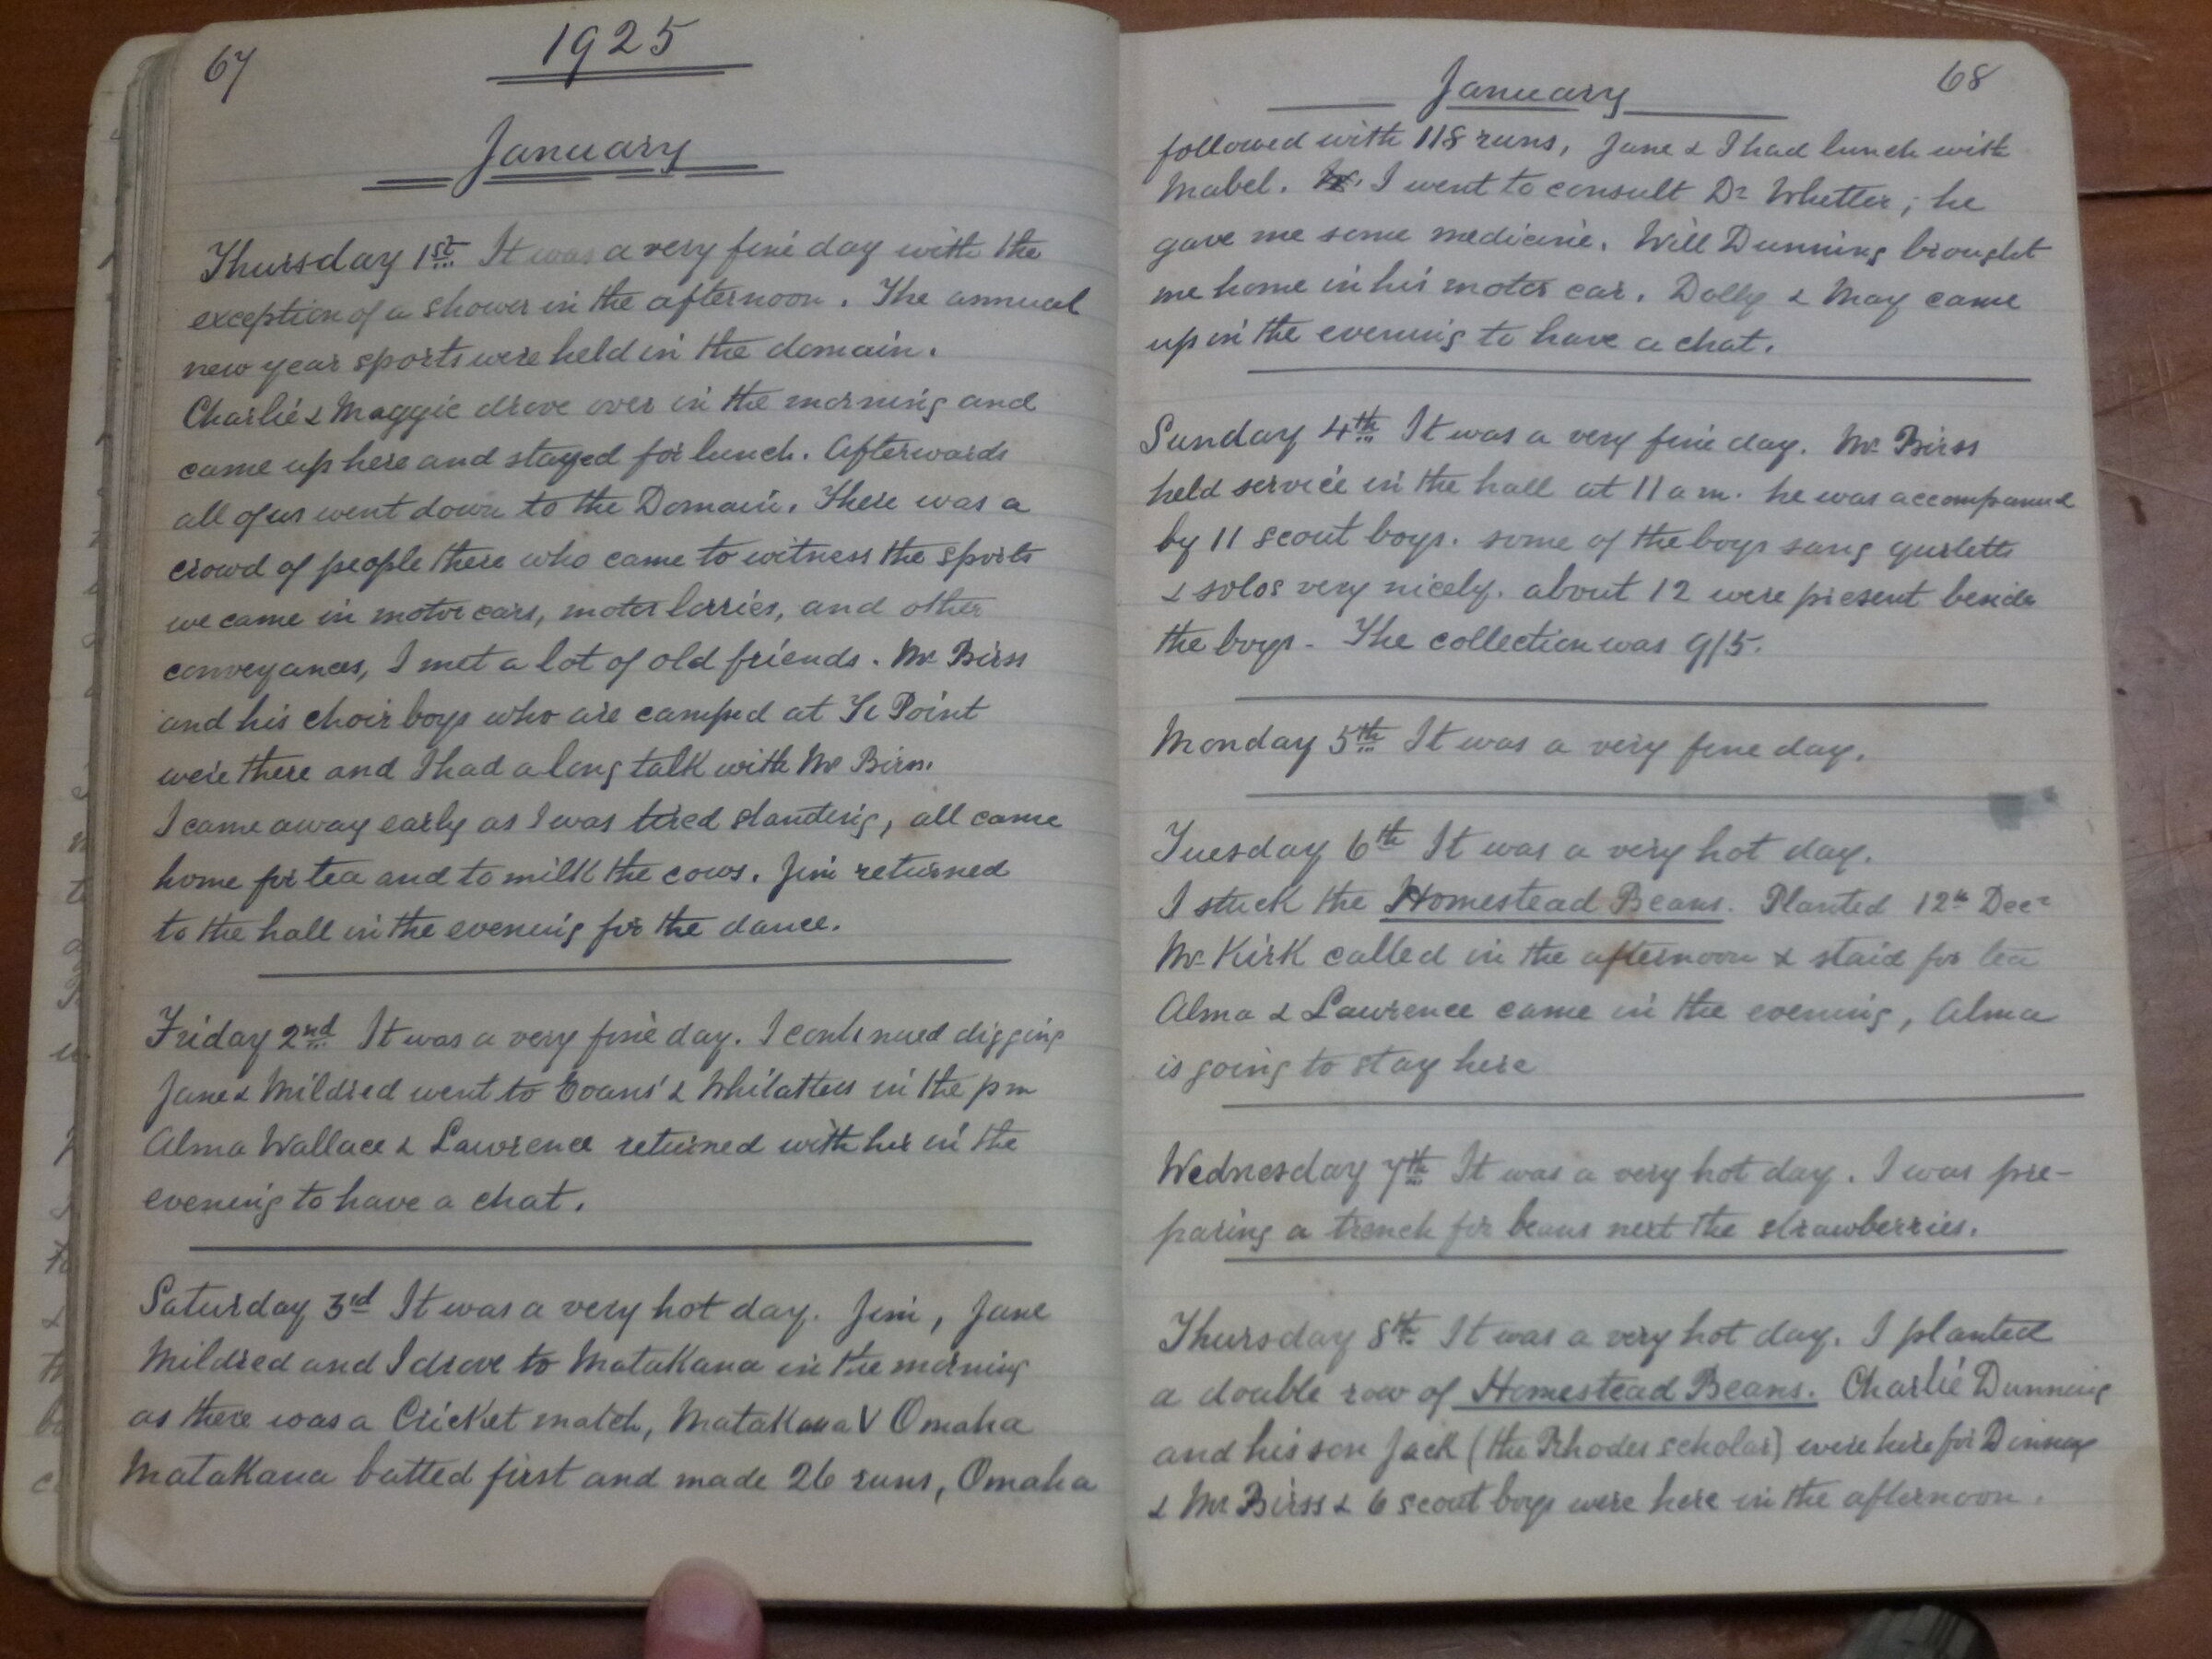 67
1925
January
Thursday 1st It was a very fine day with the
exception of a shower in the afternoon. The annual
new year sports were held in the domain.
Charlie & Maggie drove over in the morning and
came up here and stayed for lunch. Afterwards
all of us went down to the Domain. There was a
crowd of people there who came to witness the sports
we came in motor cars, motor lorries, and other
conveyances, I met a lot of old friends. Mr Birss
and his choir boys who are camped at Ti Point
were there and I had a long talk with Mr Birss.
I came away early as I was tired standing, all came
home for tea and to milk the cows. Jim returned
to the hall in the evening for the dance.
Friday 2nd It was a very fine day. I continued digging
Jane & Mildred went to Evans' & in the pm
Alma Wallace & Lawrence returned with her in the
evening to have a chat.
Saturday 3rd It was a very hot day. Jim, Jane
Mildred and I drove to Matakana in the morning
as there was a Cricket match, Matakana V Omaha
Matakana batted first and made 26 runs, Omaha
January
68
followed with 118 runs, Jane & I had lunch with
Mabel. I went to consult Dr Whetter, he
gave me some medicine. Will Dunning brought
me home in his motor car. Dolly & May came
up in the evening to have a chat.
Sunday 4th It was a very fine day. Mr Birss
held service in the hall at 11 a m. he was accompanied
by 11 scout boys. some of the boys sang
& solos very nicely. about 12 were present beside
the boys - The collection was 9/5.
Monday 5th It was a very fine day.
Tuesday 6th It was a very hot day.
I stuck the Homestead Beans. Planted 12th Decr
Mr Kirk called in the afternoon & staid for tea
Alma & Lawrence came in the evening, Alma
is going to stay here
Wednesday 7th It was a very hot day. I was pre-
paring a trench for beans next the strawberries.
Thursday 8th It was a very hot day. I planted
a double row of Homestead Beans. Charlie Dunning
and his son Jack (the Rhodes scholar) were here for Dinner
& Mr Birss & 6 scout boys were here in the afternoon.